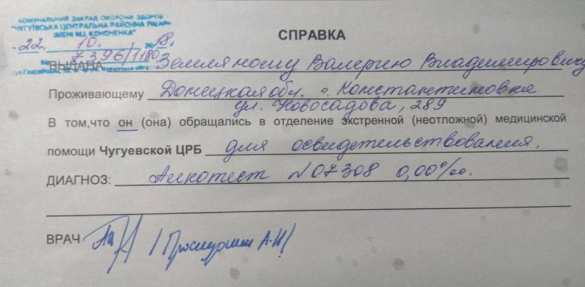 КОМУНАЛЬНИЙ ЗАКЛАД ОХОРОНИ ЗДОРОВ'Я
"ЧУГУЇВСЬКА ЦЕНТРАЛЬНА РАЙОННА ЛІКАРНЯ
ІМЕНІ М.І. КОНОНЕНКА"
22. 10.
СПРАВКА
ВЫДАНА Земляному Валерию Владимировичу
Проживающему Донецкая обл. г. Константиновка
ул. Новосадова, 289
В том,что он (она) обращались в отделение экстренной (неотложной) медицинской
помощи Чугуевской ЦРБ для освидетельствования.
ДИАГНОЗ: Алкотест N07308 0,00‰.
ВРАЧ